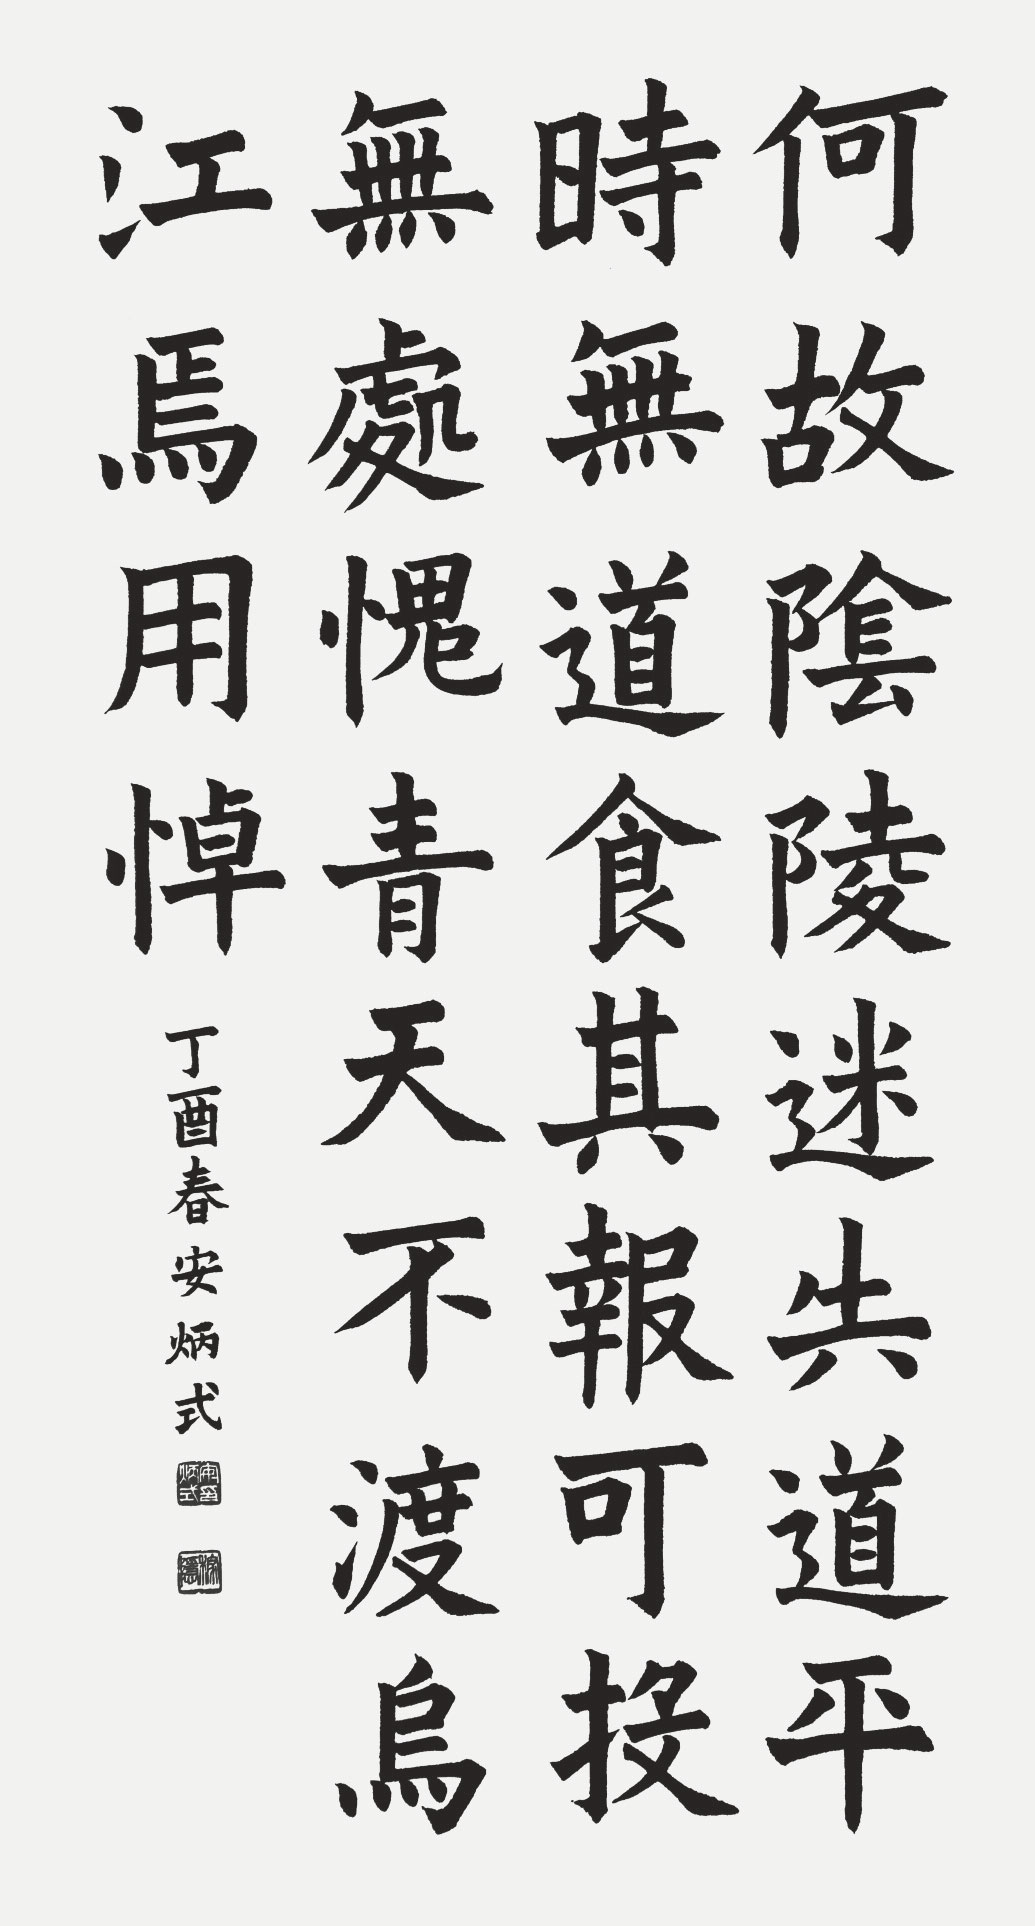 何故陰陵迷失道平
時無道食其報可投
無處愧青天不渡烏
江焉用悼
丁酉春安炳式
安印炳式